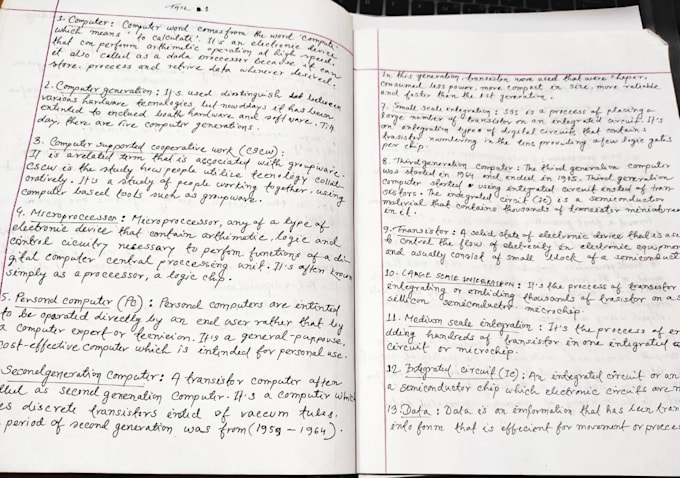 1. Computer: Computer word comes from the word "compute"
which means "to calculate". It's an electronic device
that can perform arthmetic operation at high speed.
it also called as a data processor because it can
store, process and retrive data whenever desired.
2. Computer generation: It's used distinguish between
various hardware tecnologies, but nowdays it has been
extended to enclued boath hardware and software. Till
day, there are five computer generations.
3. Computer supported cooperative work (CSCW):
It is a related term that is associated with groupware.
CSCW is the study how people utilize tecnology collab
oratively. It's a study of people working together, using
computer based tools such as groupware.
4. Microprocessor: Microprocessor, any of a type of
electronic device that contain arthimetic, logic and
control cicuitry necessary to perform functions of a di-
gital computer central processing unit. It's often known
simply as a processor, a logic chip.
5. Personal computer (Pc): Personal computers are intinted
to be operated directly by an end user rather that by
a computer expert or tecnicion. It is a general-purpouse,
cost-effective computer which is intended for personal use.
Second generation computer: A transistor computer often
lled as second generation computer. It's a computer which
es discrete transistors insted of vaccum tubes.
period of second generation was from (1959 - 1964).
In this generation, transistor were used that were cheaper,
consumed less power, more compact in size, more reliable
and faster than the 1st generation.
7. Small scale integration: SSI is a process of placing a
large number of transistor on an integrated circuit. It's
an integration type of digital circuit that contains
transistor numbering in the tens providing a few logic gates
per chip.
8. Third generation computer: The third generation computer
was started in 1964 and ended in 1985. Third generation
computer started using integrated circuit insted of tran
sistors. The integrated circuit (Ic) is a semiconductor
material that contains thousands of transistor miniature
in it.
9. Transistor: A solid state of electronic device that is use
to control the flow of eletrecity in electronic equipmen
and usually consist of small block of a semiconduct
10. LARGE SCALE INTEGRATION: It's the process of transistor
integrating or embiding thousands of trasistor on a s
sillicon semiconductor macrochip.
11. Medium scale integration: It's the process of em
dding hundreds of transistor in one integrated
circuit or microchip.
12. Integrated circuit (Ic): An integrated circuit or an
a semiconductor chip which electronic circuits are
13. Data: Data is an information that has been tran
into form that is effecient for movement or proces